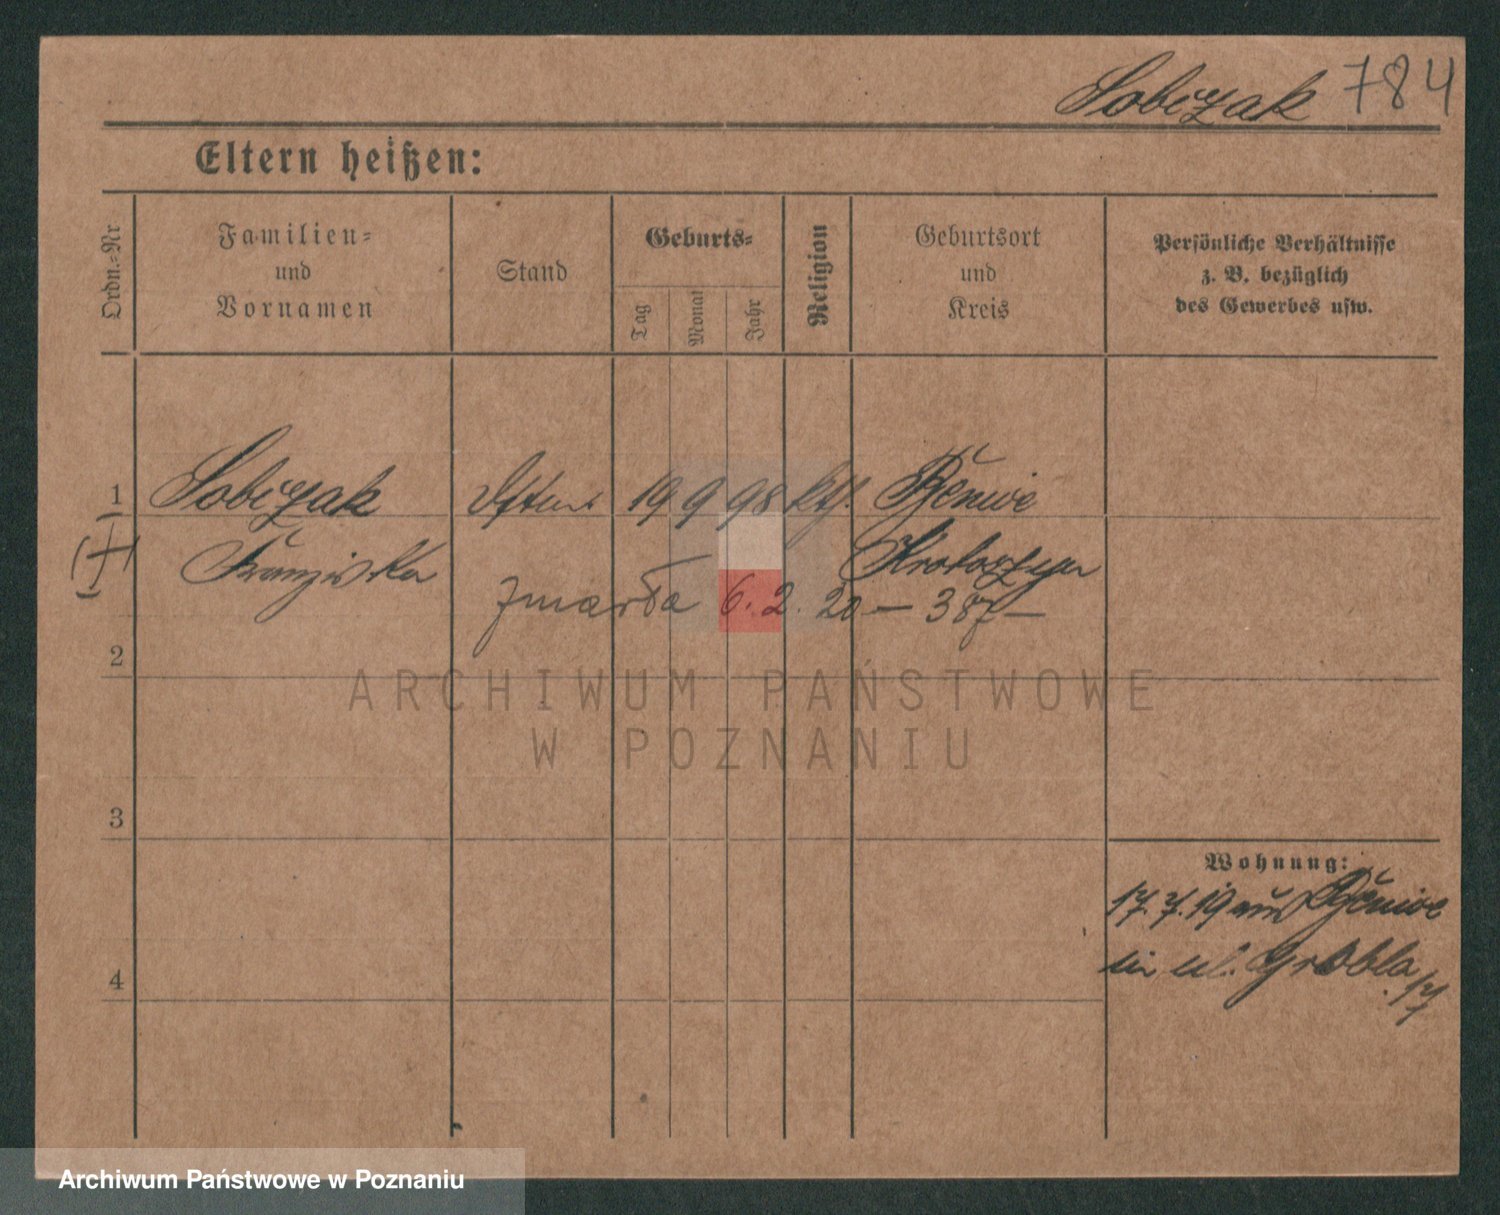 Sobczak 784
Eltern heißen:
Ordn.-Nr
Familien-
und
Vornamen
Stand
Geburts-
Tag
Monat
Jahr
Religion
Geburtsort
und
Kreis
Persönliche Verhältnisse
z. B. bezüglich
des Gewerbes usw.
1 Sobczak 19 9 98 kth.
Franziska Krotoszyn
zmarła 6. 2. 20 – 387 –
2
ARCHIWUM PAŃSTWOWE
W POZNANIU
3
Wohnung:
17.7.19 aus
in ul. Grobla 17
4
Archiwum Państwowe w Poznaniu